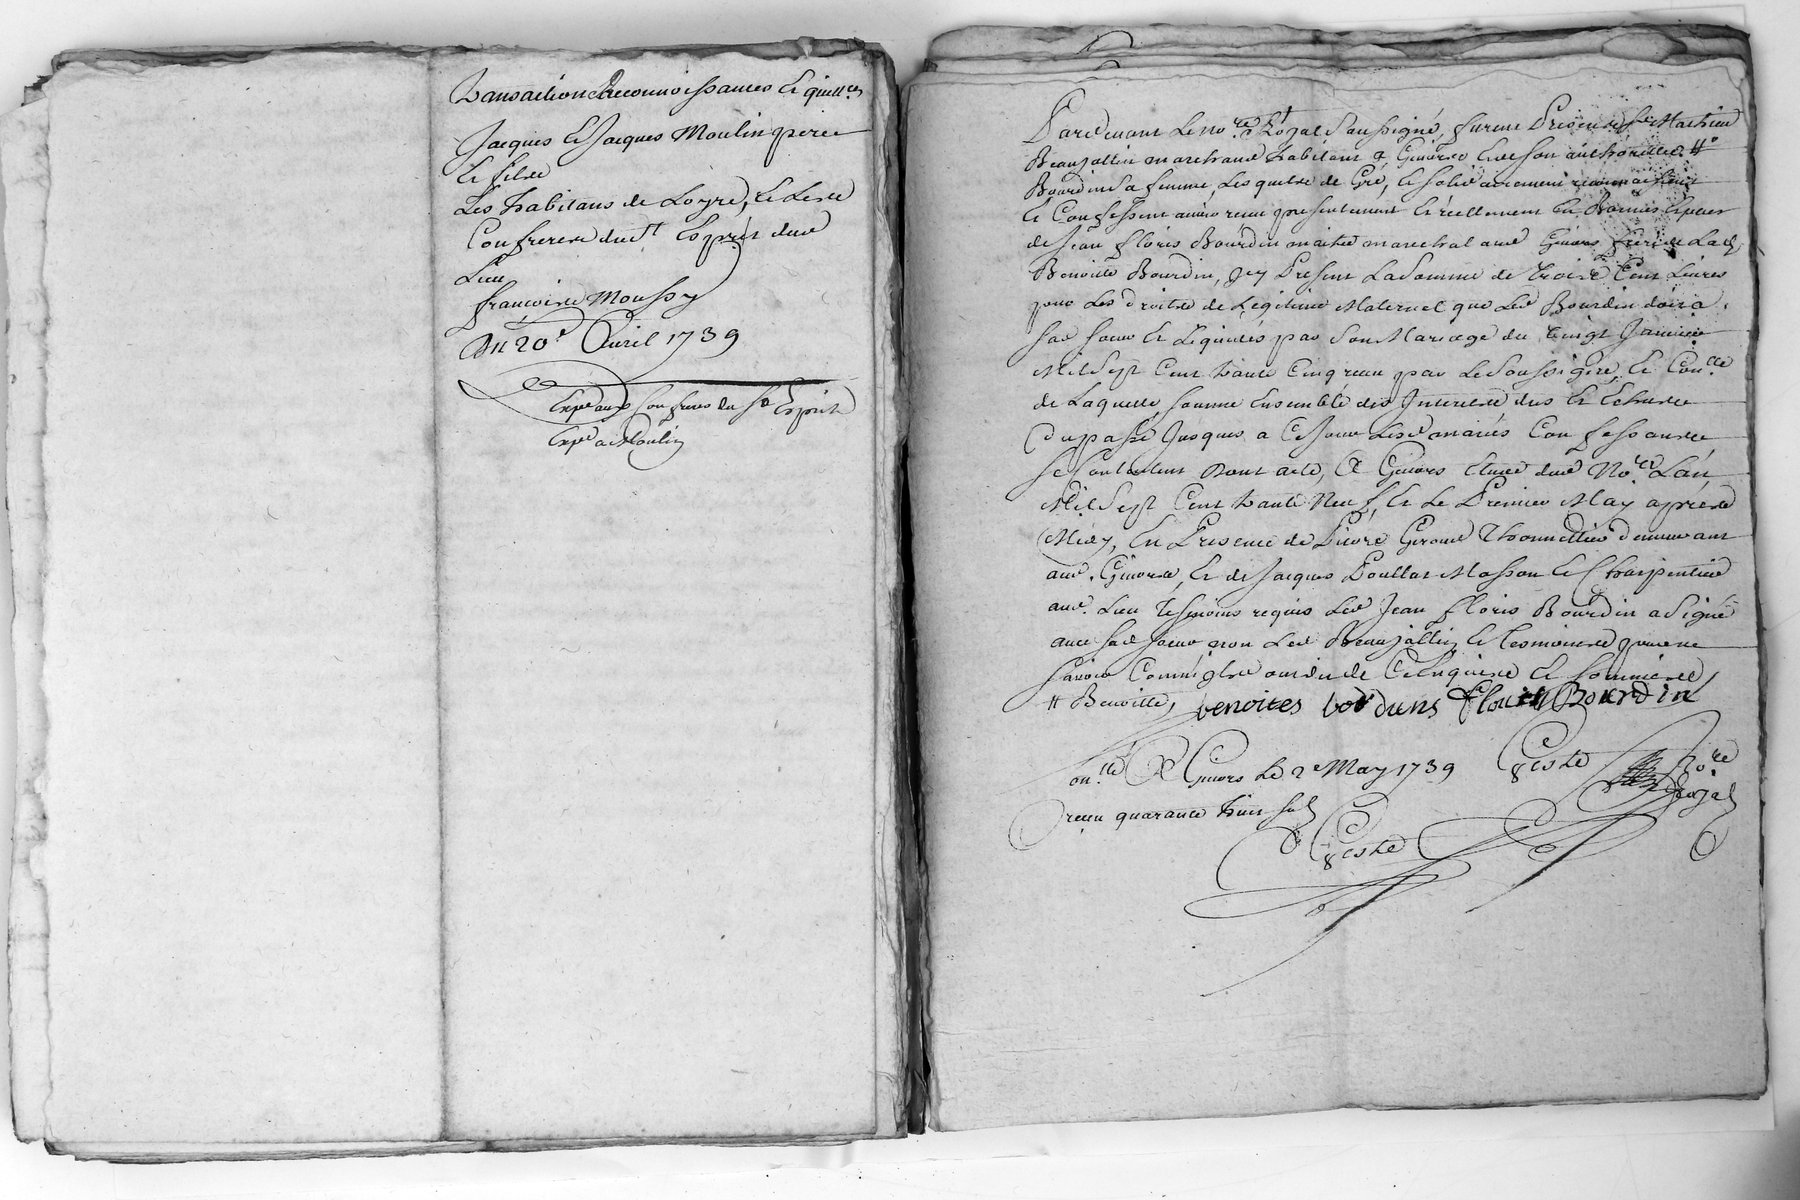 Transaction Reconnoissances et quitt.ces
Jacques et Jacques Moulin pere
et fils
Les habitans de Loyre, et les
Confreres du St Esprit dud
Lieu
françoise Moussy
Du 20e Avril 1739
Expé aux Confreres du St Esprit
Expé a Moulin
Pardevant le No.re Royal Soussigné, furent Presens sr Mathieu
Beaujollin marchand habitant a Givors et de son authorité #
Bourdin sa femme, lesquels de Gré, et solidairement reconnoissent
et Confessent avoir receu presentement et réellement en Bonnes Especes
de Jean floris Bourdin maitre marechal aud Givors frere de lad
Benoitte Bourdin, icy Present La Somme de trois Cent Livres
pour les droits de Legitime Maternel que led Bourdin doit a
sad soeur et liquidés par son Mariage du vingt Janvier
Mil Sept Cent trante Cinq receu par le Soussigné, et Con.lle
de Laquelle somme Ensemble des Interests dus et Echus
du passé Jusques a ce Jour lesd mariés Confessants
se Contentent Dont acte, A Givors Etude dud No.re L'an
Mil Sept Cent trante Neuf, et le Premier May apres
Midy, En Presence de Pierre Giraud Thonnellier demeurant
aud. Givors et de Jacques Poullat Masson et Charpentier
aud. Lieu tesmoins requis led Jean floris Bourdin a Signé
avec sad soeur non led Beaujollin et tesmoins pour ne
sçavoir Comm'ils ont dit de Ce Enquis et sommés
# Benoitte,
benoites bordins floris Bourdin
Con.llé A Givors le 2e May 1739
receu quarante huit sols
No.re
Royal